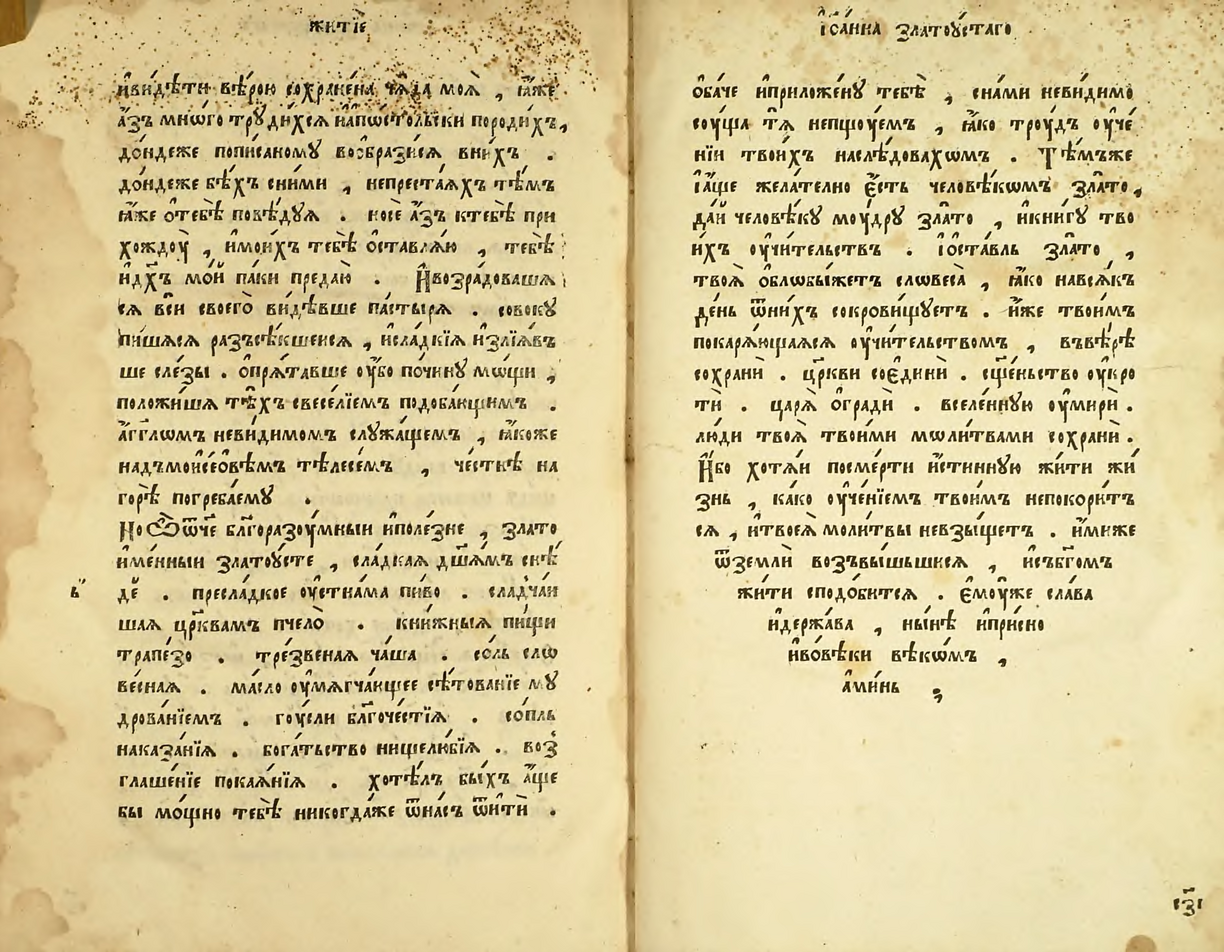 житїе
и҆ви́дѣти вѣ́рою сохране́на ча̑да моѧ̀ , ꙗ҆̀же
а҆́зъ мно́го трꙋди́хсѧ и҆а҆пⷭ҇тольски породи́хъ,
до́ндеже попи́саномꙋ воѡбрази́сѧ вни́хъ .
до́ндеже бѣ́хъ сни́ми , непреста́ѧхъ тѣ́мъ
ꙗ҆̀же ѻ҆тебѣ̀ повѣ́дꙋѧ . носѐ а҆́зъ ктебѣ̀ при
хождоу̀ , и҆мои́хъ тебѣ̀ ѻ҆ставлѧ́ю , тебѣ̀
и҆дх҃ъ мо́й па́ки предаю̀ . И҆возра́довашѧ
сѧ всѝ своего̀ ви́дѣвше па́стырѧ . совокꙋ
пи́шѧсѧ разъсѣ́кшеисѧ , и҆сла́дкїѧ и҆злїѧ́въ
ше сле́зы . ѻ҆прѧ́тавше оу҆́бо почи́нꙋ мѡ́щи ,
положи́шѧ тѣ́хъ свесе́лїемъ подоба́ющимъ .
а҆́гг҃лѡмъ неви́димомъ слꙋжа́щемъ , ꙗ҆́коже
надъмоѷсе́ѡвѣмъ тѣлесе́мъ , че́стнѣ на
горѣ̀ погреба́емꙋ .
Но ѽ ѿч҃е бл҃горазоу́мныи и҆поле́зне , злато
и҆ме́нныи златоу́сте , сла́дкаѧ дш҃ѧ́мъ снѣ́
дѐ . пресла́дкое оу҆стна́ма пи́во . сладча́и
шаѧ цр҃квамъ пчело̀ . кни́жныѧ пи́щи
трапе́зо . тре́звенаѧ ча́ша . со́ль слѡ
ве́снаѧ . ма́сло оу҆мѧгча́ющее сѣ́тованїе мꙋ
дрова́нїемъ . гоу́сли бл҃гоче́стїѧ . со́пль
наказа́нїѧ . бога́тьство нищелю́бїѧ . воз̾
глаше́нїе покаѧ́нїѧ . хотѣ́лъ бы́хъ а҆́ще
бы мо́щно тебѣ̀ никогда́же ѿна́съ ѿитѝ .
в҃
і҆ѡа́нна златоу́стаго
ѻ҆ба́че и҆приложе́нꙋ тебѣ̀ , сна́ми неви́димо
со́уща тѧ̀ непщоу́емъ , ꙗ҆́ко троу́дъ оу҆че́
нїи твои́хъ наслѣ́довахѡмъ . Тѣ́мъже
і҆а҆́ще жела́телно є҆́сть человѣ́кѡмъ зла́то ,
да́й человѣ́кꙋ моу́дрꙋ зла́то , и҆кни́гꙋ тво
и́хъ оу҆чи́тельствъ . і҆ѡста́вль зла́то ,
твоѧ̀ ѻ҆блѡбы́жетъ слѡвеса̀ , ꙗ҆́ко навсѧ́къ
де́нь ѿни́хъ сокро́вищꙋетъ . и҆́же твои́мъ
покарѧ́ющаѧсѧ оу҆чи́тельствомъ , въвѣ́рѣ
сохранѝ . цр҃кви соедини́ . сщ҃е́ньство оу҆кро
тѝ . царѧ̀ ѻ҆градѝ . вселе́ннꙋю оу҆миpѝ .
лю́ди твоѧ̀ твои́ми мѡли́твами сохранѝ .
И҆́бо хотѧ́и посме́рти и҆́стиннꙋю жи́ти жи́
знь , ка́ко оу҆че́нїемъ твои́мъ непокори́тъ
сѧ , и҆твоеѧ̀ моли́твы невзы́щетъ . и҆́миже
ѿземлѝ возъвы́шьшисѧ , и҆събг҃омъ
жи́ти сподо́битсѧ . є҆моу́же сла́ва
и҆держа́ва , ны́нѣ и҆при́сно
и҆вовѣ́ки вѣкѡ́мъ ,
а҆ми́нь ,
з҃і